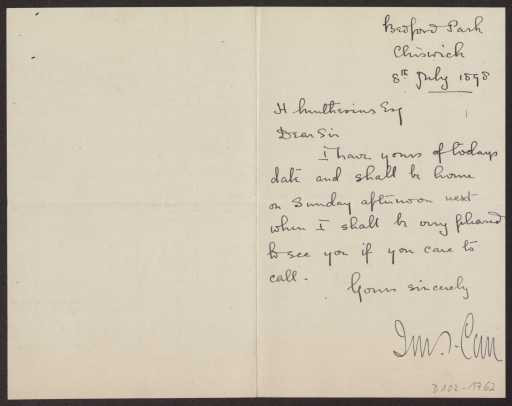 Bedford Park
Chiswick
8th July 1898
H. Muthesius Esq
Dear Sir
I have yours of todays
date and shall be home
on Sunday afternoon next
when I shall be very pleased
to see you if you care to
call.
Yours sincerely
D102-1762